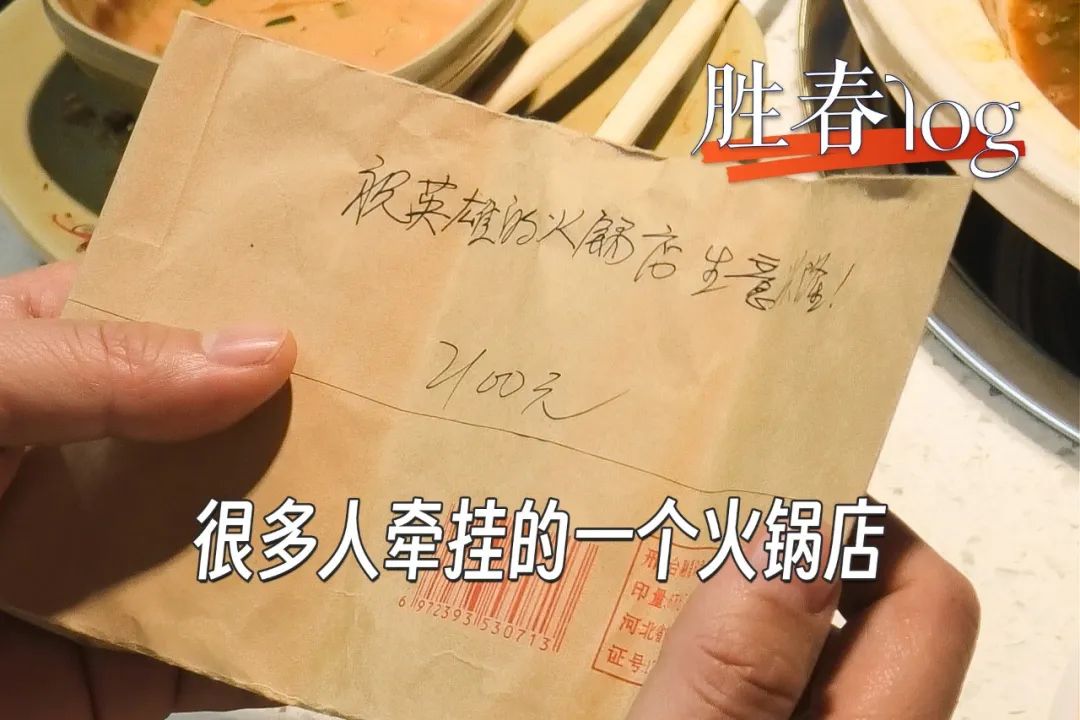 胜春log
祝英雄的火锅店生意隆!
2100元
很多人牵挂的一个火锅店
6 972393 530713
邢台
印量
河北省
证号